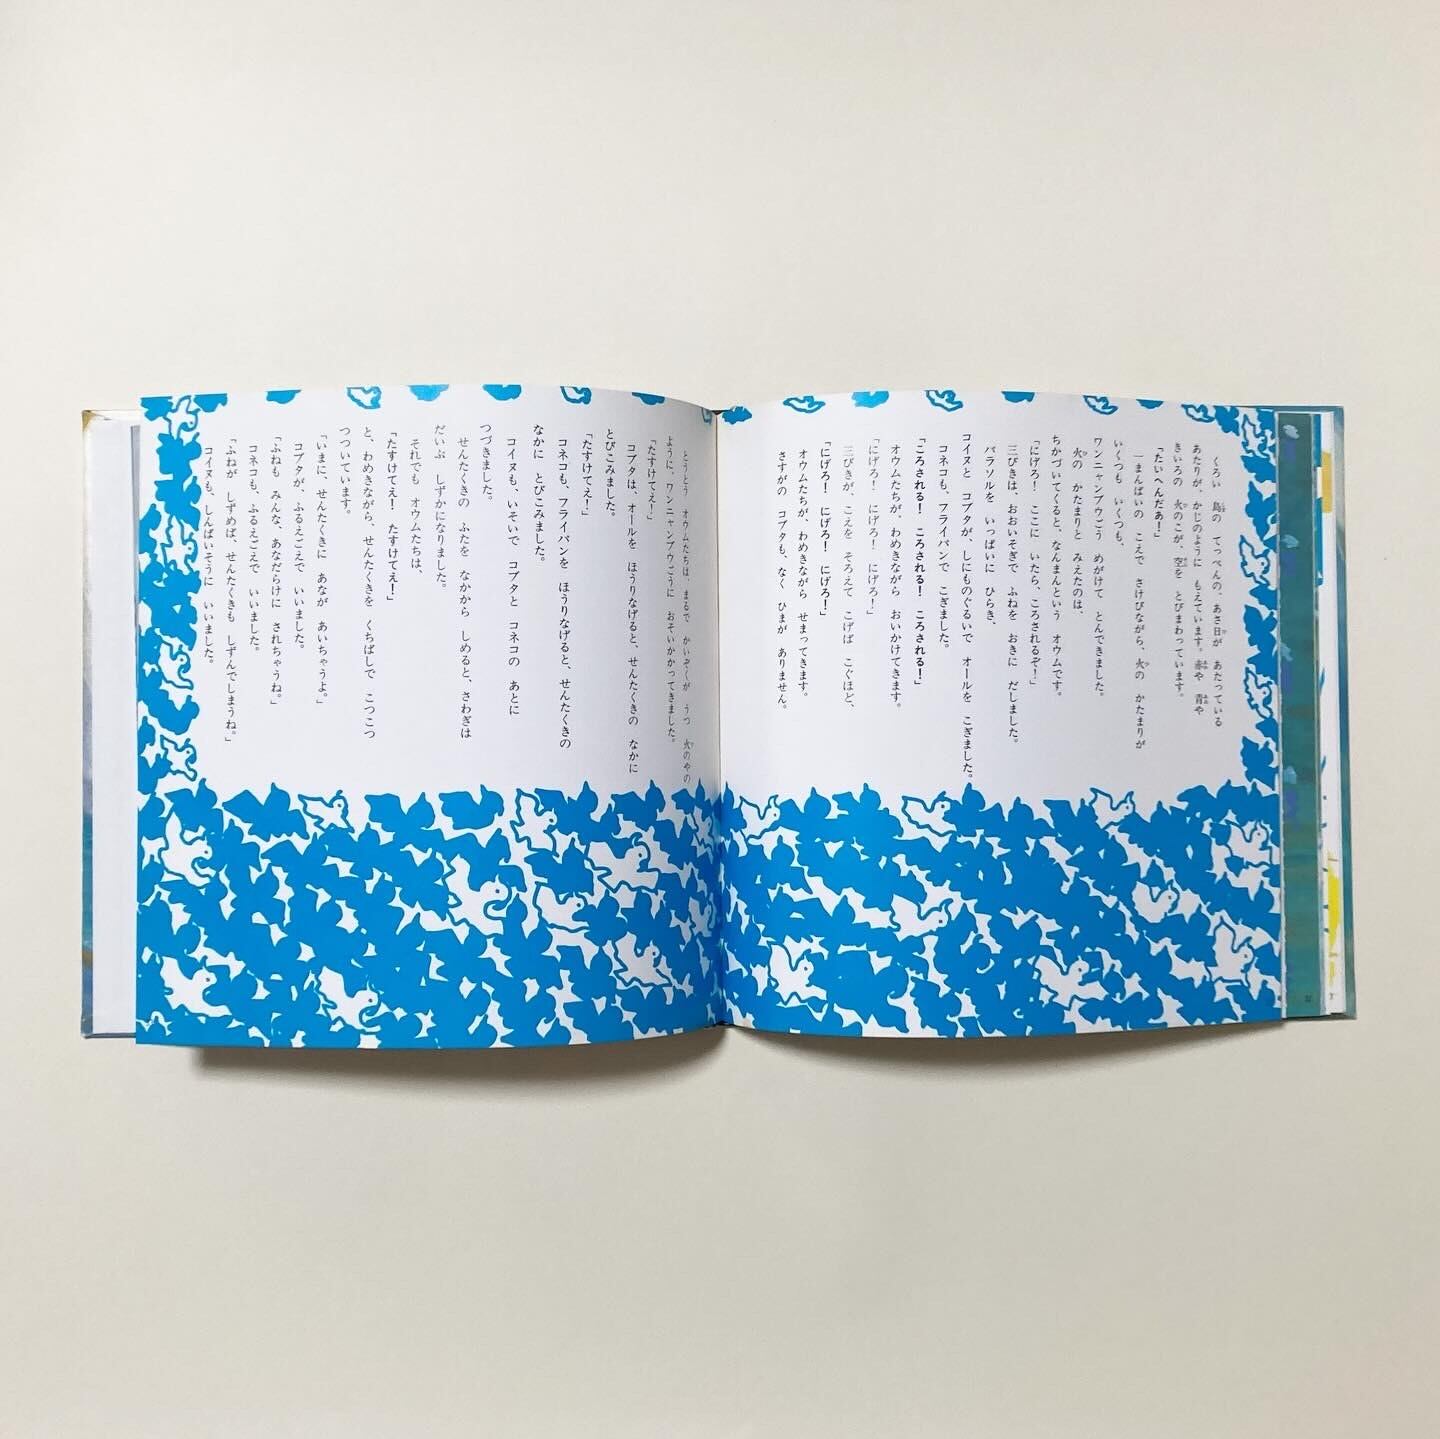 くろい 島の てっぺんの、あさ日が あたっている
あたりが、かじのように もえています。赤や 青や
きいろの 火のこが、空を とびまわっています。
「たいへんだあ！」
一まんばいの こえで さけびながら、火の かたまりが
いくつも いくつも、
ワンニャンブウごう めがけて とんできました。
火の かたまりと みえたのは、
ちかづいてくると、なんまんという オウムです。
「にげろ！ ここに いたら、ころされるぞ！」
三びきは、おおいそぎで ふねを おきに だしました。
パラソルを いっぱいに ひらき、
コイヌと コブタが、しにものぐるいで オールを こぎました。
コネコも、フライパンで こぎました。
「ころされる！ ころされる！ ころされる！」
オウムたちが、わめきながら おいかけてきます。
「にげろ！ にげろ！ にげろ！」
三びきが、こえを そろえて こげば こぐほど、
「にげろ！ にげろ！ にげろ！」
オウムたちが、わめきながら せまってきます。
さすがの コブタも、なく ひまが ありません。
とうとう オウムたちは、まるで かいぞくが うつ 火のやの
ように、ワンニャンブウごうに おそいかかってきました。
「たすけてえ！」
コブタは、オールを ほうりなげると、せんたくきの なかに
とびこみました。
「たすけてえ！」
コネコも、フライパンを ほうりなげると、せんたくきの
なかに とびこみました。
コイヌも、いそいで コブタと コネコの あとに
つづきました。
せんたくきの ふたを なかから しめると、さわぎは
だいぶ しずかになりました。
それでも オウムたちは、
「たすけてえ！ たすけてえ！」
と、わめきながら、せんたくきを くちばしで こつこつ
つついています。
「いまに、せんたくきに あなが あいちゃうよ。」
コブタが、ふるえごえで いいました。
「ふねも みんな、あなだらけに されちゃうね。」
コネコも、ふるえごえで いいました。
「ふねが しずめば、せんたくきも しずんでしまうね。」
コイヌも、しんぱいそうに いいました。